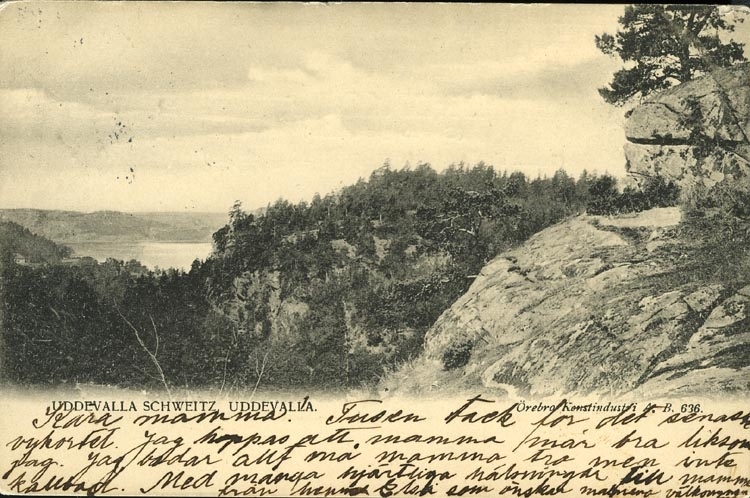 UDDEVALLA SCHWEITZ, UDDEVALLA.
Örebro Konstindustri A. B. 636.
Kära mamma! Tusen tack för det senaste
vykortet. Jag hoppas att mamma mår bra liksom
jag. Jag badar allt må mamma tro men inte
kallbad. Med många hjärtliga hälsningar till mamma
från Elsa som önskar mamma välkommen